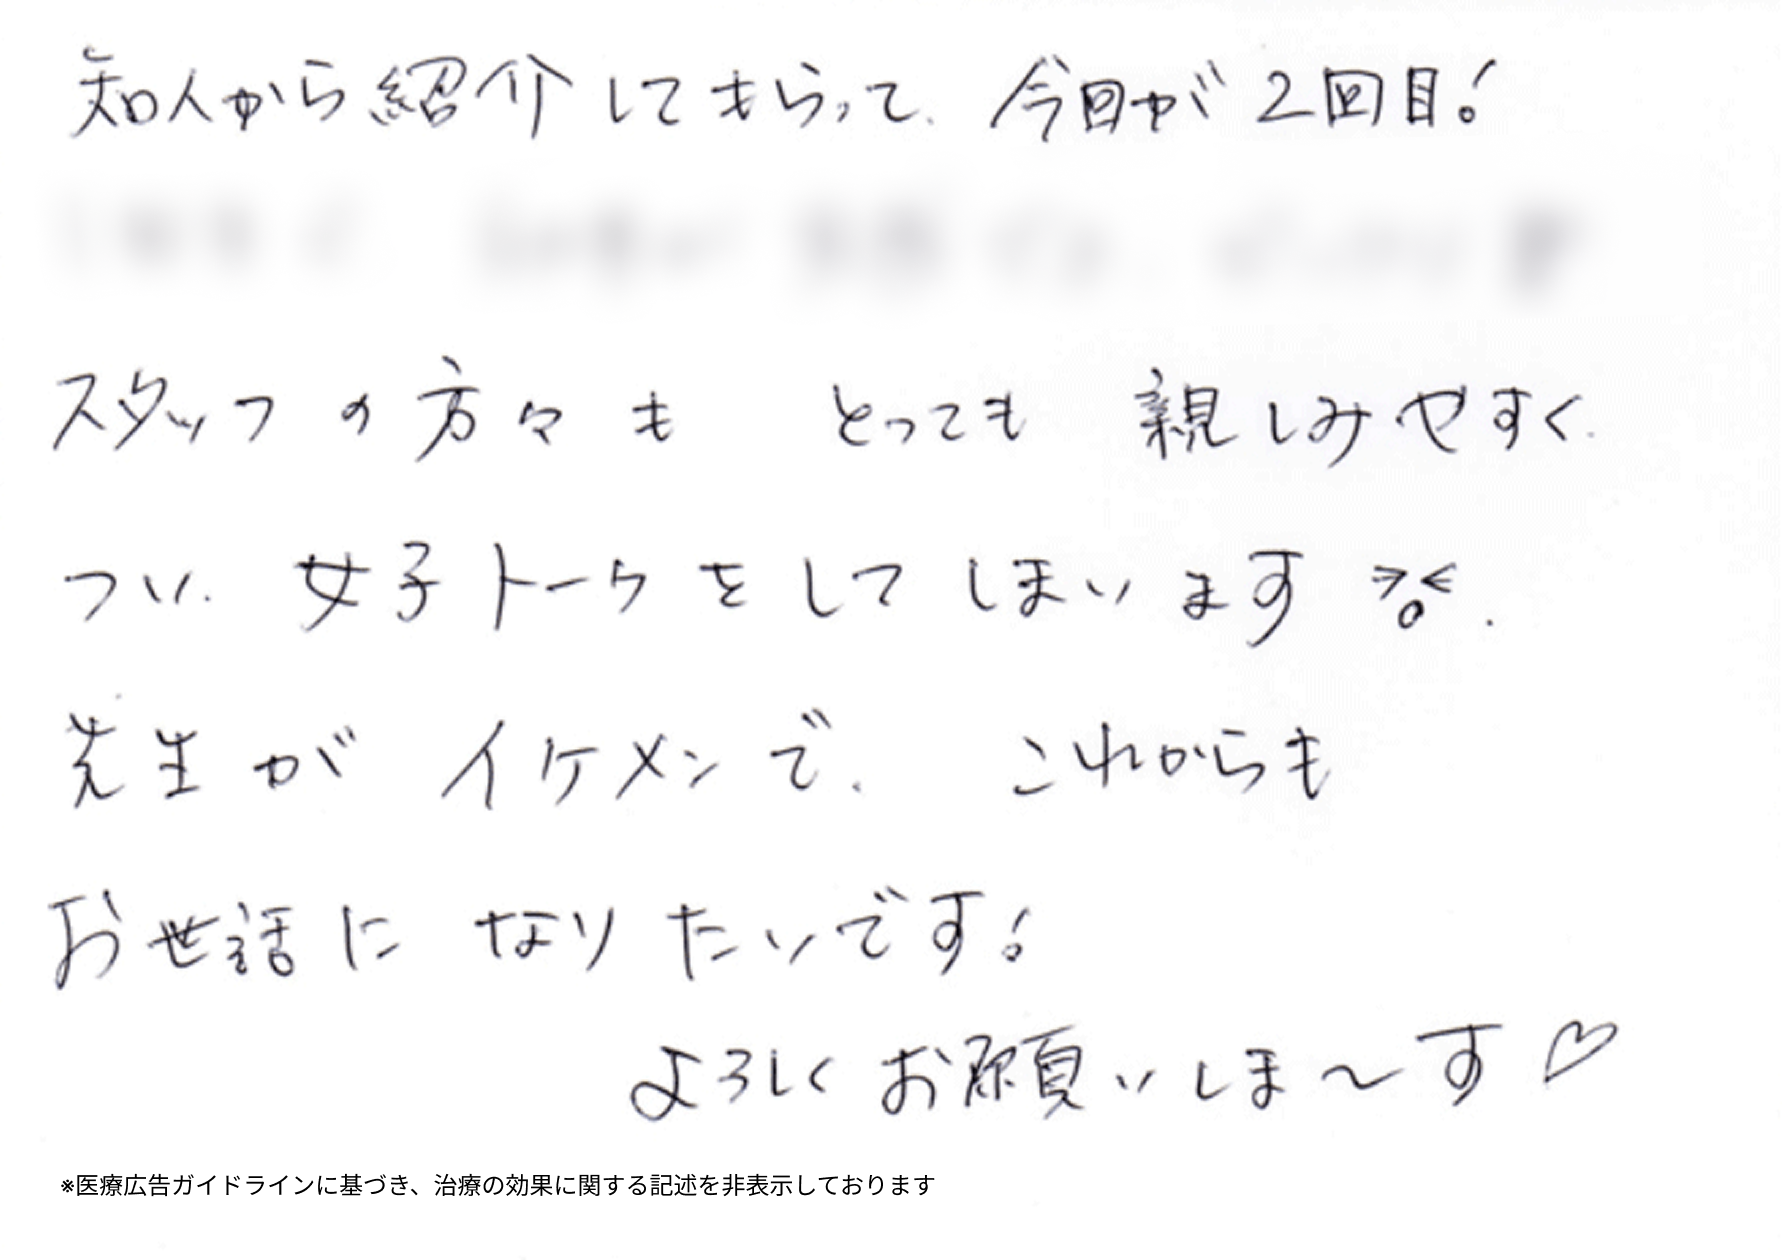 知人から紹介してもらって、今日が2回目!
スタッフの方々も とっても 親しみやすく、
つい、女子トークをしてしまいます >o<.
先生が イケメンで、 これからも
お世話に なりたいです!
よろしくお願いしま〜す♡
※医療広告ガイドラインに基づき、治療の効果に関する記述を非表示しております